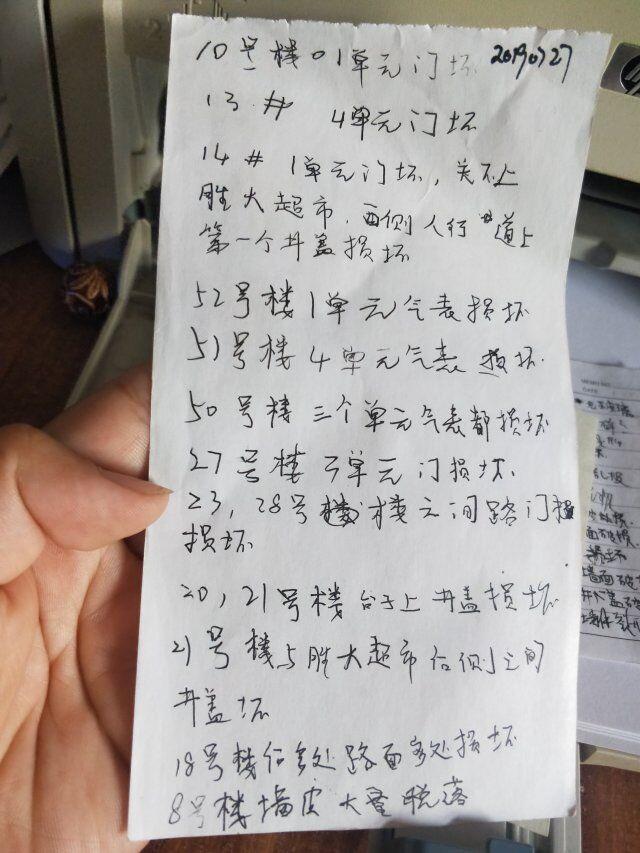 10号楼01单元门坏 20190727
13# 4单元门坏
14# 1单元门坏,关不上
胜大超市.西侧人行道上
第一个井盖损坏
52号楼1单元气表损坏
51号楼4单元气表损坏.
50号楼三个单元气表都损坏
27号楼3单元门损坏.
23,28号楼楼之间路门
损坏
20,21号楼台子上井盖损坏
21号楼与胜大超市右侧之间
井盖坏
18号楼 路面多处损坏
8号楼墙皮大量脱落
MEMO NO.
DATE